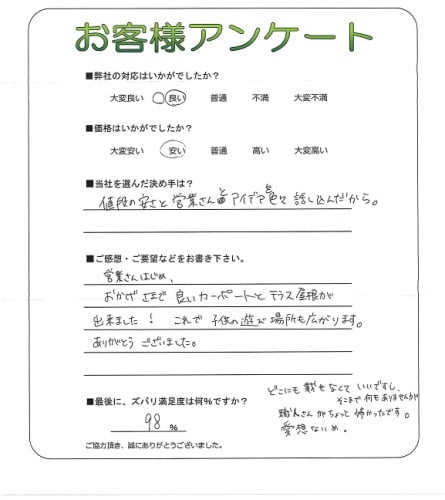 お客様アンケート
■弊社の対応はいかがでしたか?
大変良い 良い 普通 不満 大変不満
■価格はいかがでしたか?
大変安い 安い 普通 高い 大変高い
■当社を選んだ決め手は?
値段の安さと営業さんとアイデア色々話し込んだから。
■ご感想・ご要望などをお書き下さい。
営業さんはじめ、
おかげさまで良いカーポートとテラス屋根が
出来ました! これで子供の遊び場所も広がります。
ありがとうございました。
■最後に、ズバリ満足度は何%ですか?
98 %
ご協力頂き、誠にありがとうございました。
どこにも載せなくていいですし、
そこまで何もありませんが
職人さんがちょっと怖かったです。
愛想ないめ。